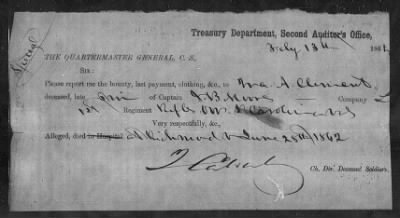 Treasury Department, Second Auditor's Office,
July 13th 186
THE QUARTERMASTER GENERAL, C. S.,
SIR:
Please report me the bounty, last payment, clothing, &c., to Ira A Clement
deceased, late of Captain Company
1st Regiment Rifles
Very respectfully, &c.,
Alleged, died in Hospital at Richmond June 28th 1862
Ch. Div. Deceased Soldiers.